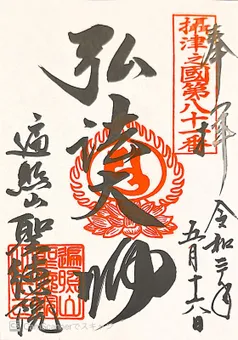 奉拝
摂津之國第八十一番
令和三年
五月十六日
弘法大師
遍照山
聖徳院
遍照山